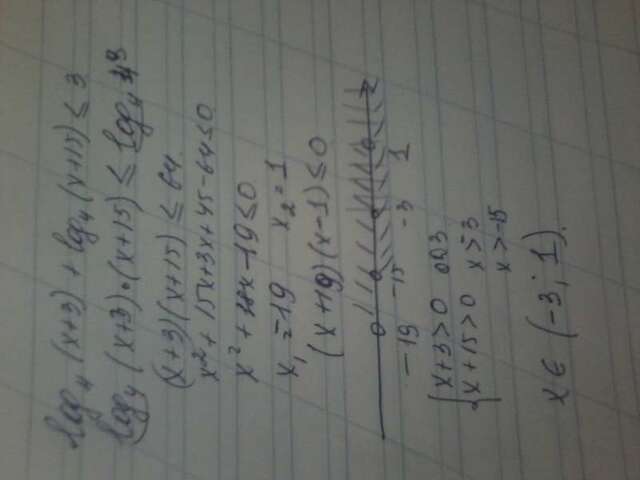 log₄(x+3) + log₄(x+15) ≤ 3
log₄(x+3)·(x+15) ≤ log₄ 4³
(x+3)(x+15) ≤ 64
x² + 15x + 3x + 45 - 64 ≤ 0
x² + 18x - 19 ≤ 0
x₁ = -19 x₂ = 1
(x+19)(x-1) ≤ 0
-19 -15 -3 1
{x+3>0 x>-3
{x+15>0 x>-15
x ∈ (-3; 1).